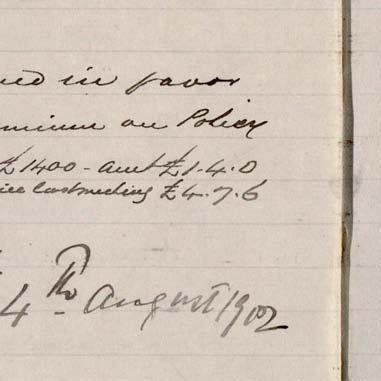 ed in favor
mium on Policy
£1400 - amt £1.4.0
last meeting £4.7.6
4th August 1902